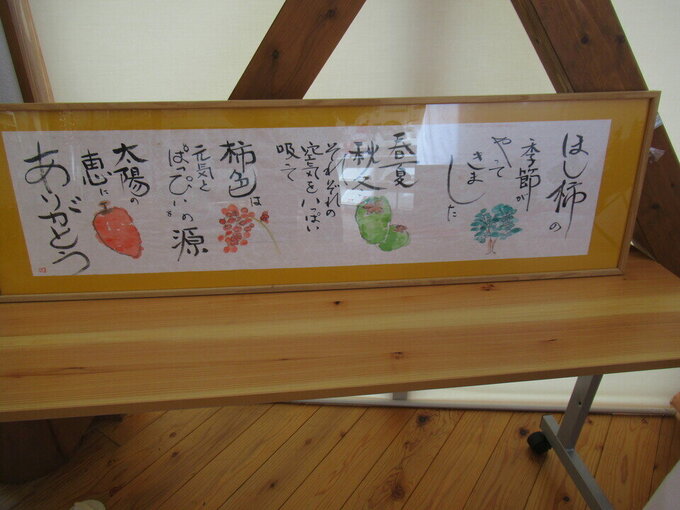 ほし柿の
季節が
やって
きま
した
春夏
秋冬
それぞれの
空気をいっぱい
吸って
柿色は
元気と
ぱっぴぃの源
太陽の
恵に
ありがとう